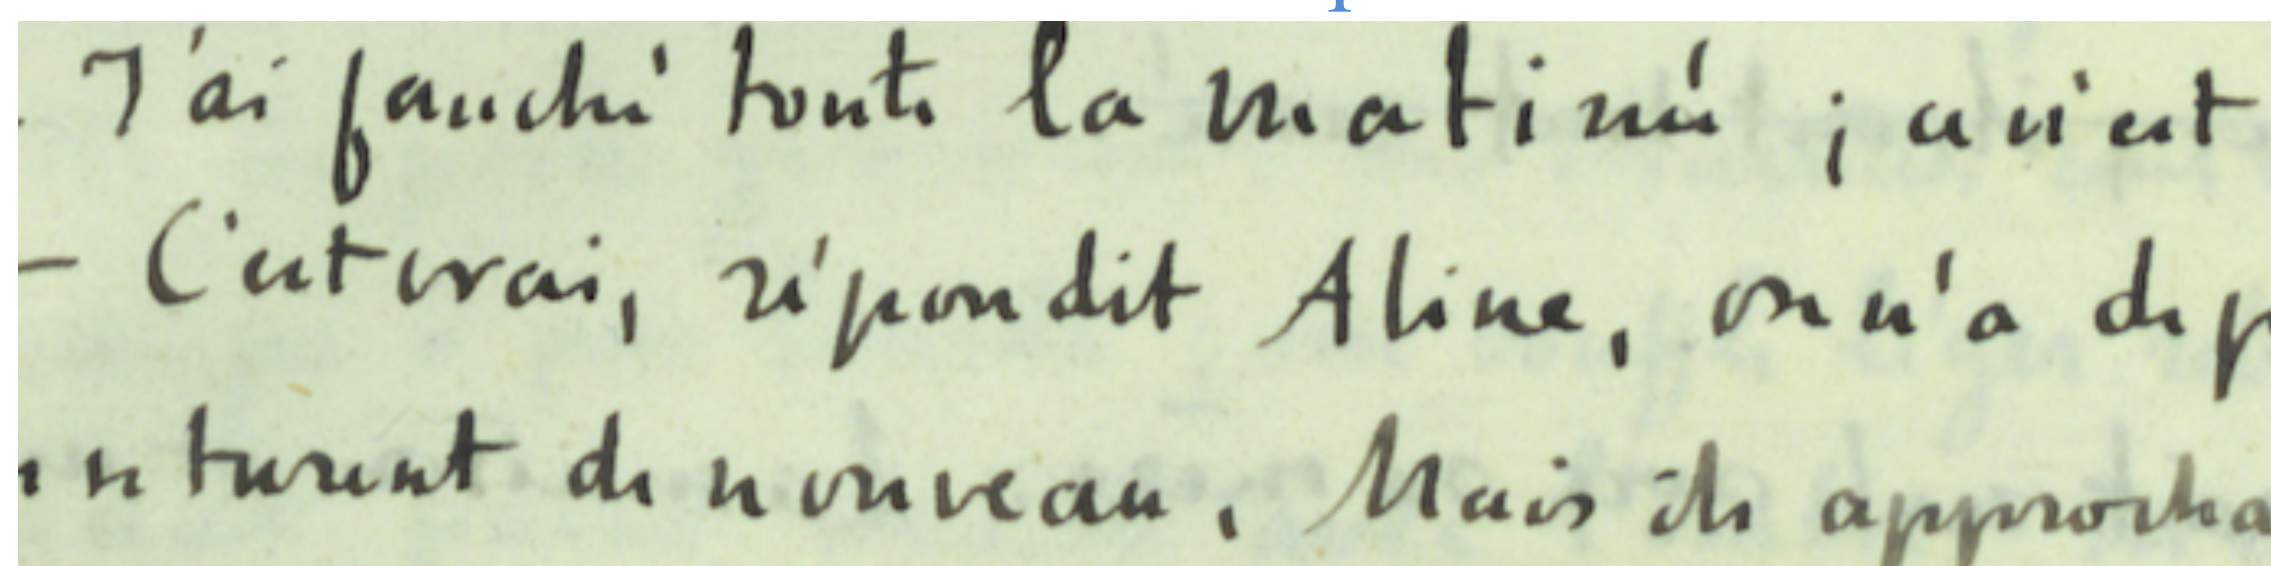 . J'ai fauché toute la matinée ; ce n'est
– C'est vrai, répondit Aline, on n'a de p
se turent de nouveau. Mais ils approcha